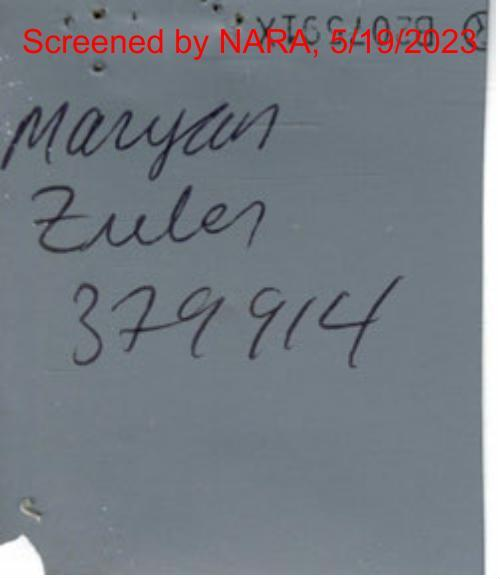 Screened by NARA, 5/19/2023
Maryan
Zuler
379914